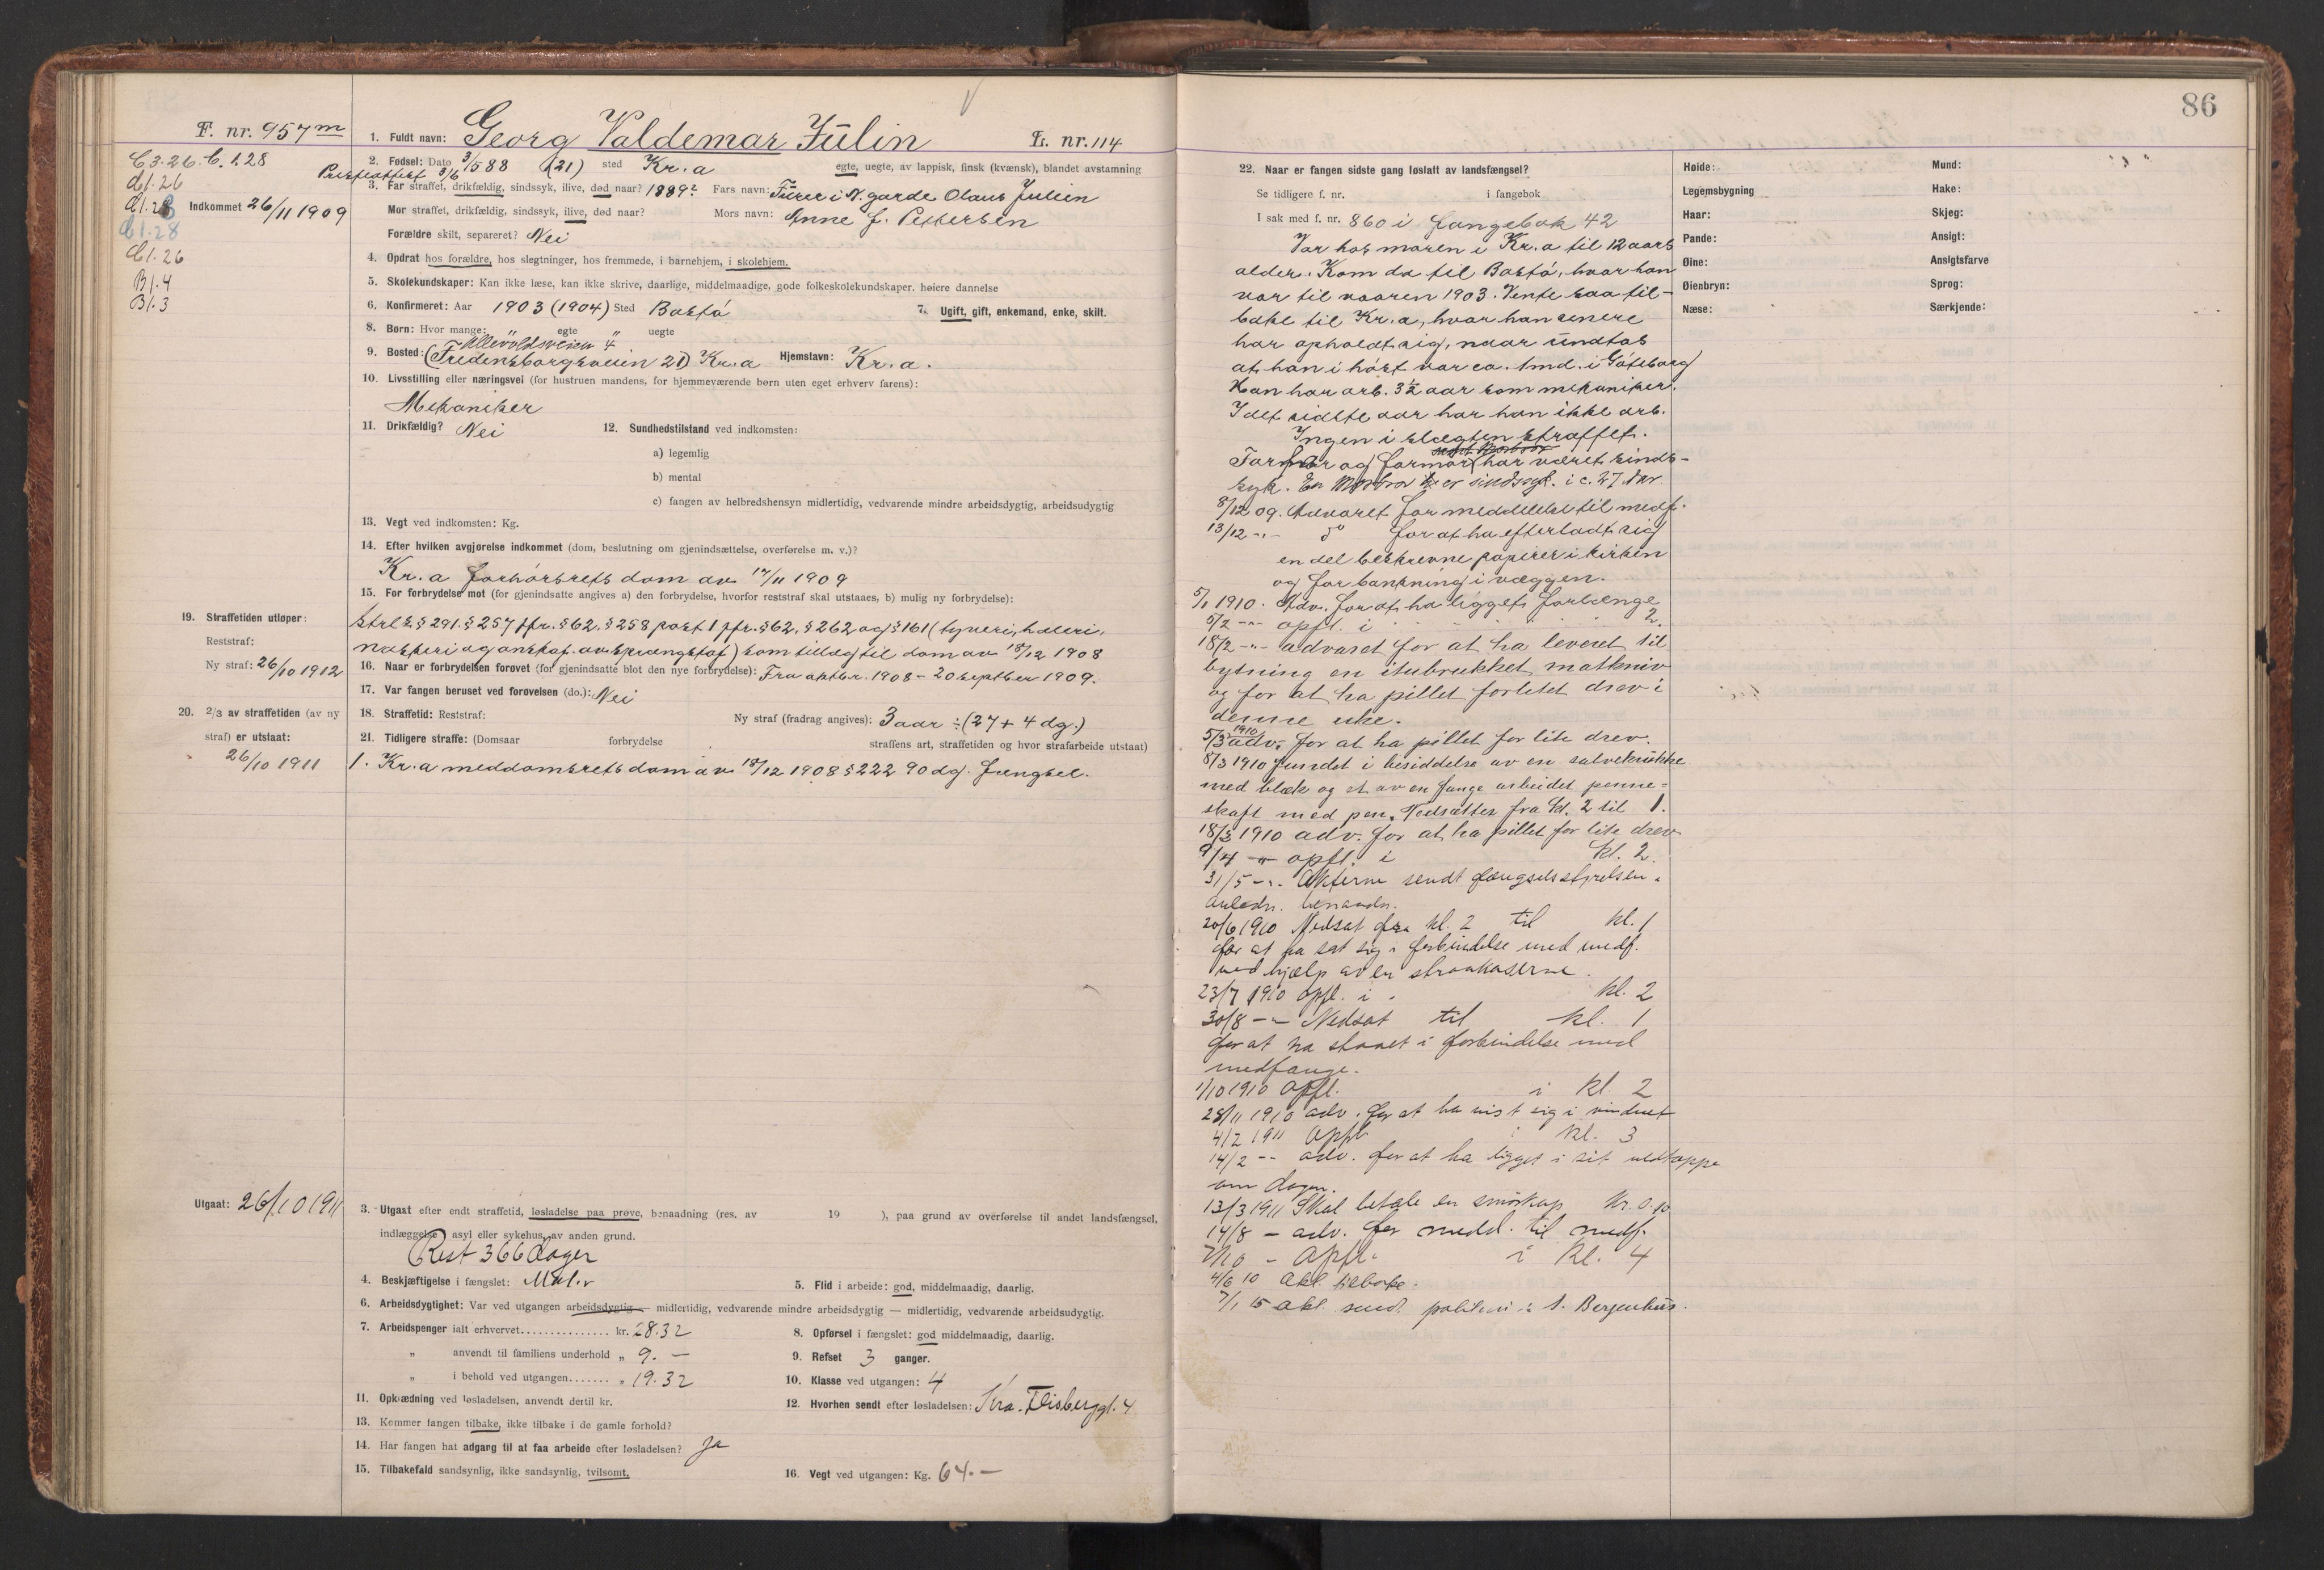 F. nr. 957 m
C 3.26. C. 1.28
d 1.26
d 1.28
C 1.28
C 1.26
B 1.4
B 1.3
Indkommet 26/11 1909
1. Fuldt navn: Georg Valdemar Jülin L. nr. 114
2. Fødsel: Dato 3/5 88 (21) sted Kr.a egte, uegte, av lappisk, finsk (kvænsk), blandet avstamning
3. Far straffet, drikfældig, sindssyk, ilive, død naar? 1889? Fars navn: Furer i N. garde Olaus Julien
Mor straffet, drikfældig, sindssyk, ilive, død naar? Mors navn: Anne J. Pettersen
Forældre skilt, separeret? Nei
4. Opdrat hos forældre, hos slegtninger, hos fremmede, i barnehjem, i skolehjem.
5. Skolekundskaper: Kan ikke læse, kan ikke skrive, daarlige, middelmaadige, gode folkeskolekundskaper. høiere dannelse
6. Konfirmeret: Aar 1903 (1904) Sted Bastö 7. Ugift, gift, enkemand, enke, skilt.
8. Børn: Hvor mange: " egte " uegte
Ullevoldsveien 4
9. Bosted: (Fredensborgsveien 21) Kr.a Hjemstavn: Kr.a.
10. Livsstilling eller næringsvei (for hustruen mandens, for hjemmeværende børn uten eget erhverv farens):
Mekaniker
11. Drikfældig? Nei 12. Sundhedstilstand ved indkomsten:
a) legemlig
b) mental
c) fangen av helbredshensyn midlertidig, vedvarende mindre arbeidsdygtig, arbeidsudygtig
13. Vegt ved indkomsten: Kg.
14. Efter hvilken avgjørelse indkommet (dom, beslutning om gjenindsættelse, overførelse m. v.)?
Kr.a forhörsrets dom av 17/11 1909
15. For forbrydelse mot (for gjenindsatte angives a) den forbrydelse, hvorfor reststraf skal utstaaes, b) mulig ny forbrydelse):
Strl. § 291. § 257 jfr. § 62. § 258 post 1 jfr. § 62. § 262 og § 161 (tyveri, hæleri,
naskeri og anskaf. av sprængstof) som tillæg til dom av 18/12 1908
16. Naar er forbrydelsen forøvet (for gjenindsatte blot den nye forbrydelse): Fra oktbr. 1908 - 20 septber 1909.
17. Var fangen beruset ved forøvelsen (do.): Nei
18. Straffetid: Reststraf: Ny straf (fradrag angives): 3 aar ÷ (27 + 4 dg.)
19. Straffetiden utløper:
Reststraf:
Ny straf: 26/10 1912
20. 2/3 av straffetiden (av ny
straf) er utstaat:
26/10 1911
21. Tidligere straffe: (Domsaar forbrydelse straffens art, straffetiden og hvor strafarbeide utstaat)
1. Kr.a meddomsrets dom av 18/12 1908 § 222 90 dg. fængsel.
Utgaat: 26/10 1911
3. Utgaat efter endt straffetid, løsladelse paa prøve, benaadning (res. av 19 ), paa grund av overførelse til andet landsfængsel,
indlæggelse i asyl eller sykehus, av anden grund.
Rest 366 dager
4. Beskjæftigelse i fængslet: Maler 5. Flid i arbeide: god, middelmaadig, daarlig.
6. Arbeidsdygtighet: Var ved utgangen arbeidsdygtig — midlertidig, vedvarende mindre arbeidsdygtig — midlertidig, vedvarende arbeidsudygtig.
7. Arbeidspenger ialt erhvervet kr. 28.32 8. Opførsel i fængslet: god middelmaadig, daarlig.
" anvendt til familiens underhold " 9. — 9. Refset 3 ganger.
" i behold ved utgangen " 19.32 10. Klasse ved utgangen: 4
11. Opklædning ved løsladelsen, anvendt dertil kr. 12. Hvorhen sendt efter løsladelsen: Kra. Flisberggt. 4
13. Kommer fangen tilbake, ikke tilbake i de gamle forhold?
14. Har fangen hat adgang til at faa arbeide efter løsladelsen? Ja
15. Tilbakefald sandsynlig, ikke sandsynlig, tvilsomt. 16. Vegt ved utgangen: Kg. 64. —
86
22. Naar er fangen sidste gang løslatt av landsfængsel?
Se tidligere f. nr. i fangebok
I sak med f. nr. 860 i fangebok 42
Var hos moren i Kr.a til 12 aars
alder. Kom da til Bastö, hvor han
var til vaaren 1903. Vente saa til-
bake til Kr.a, hvor han senere
har opholdt sig, naar undtas
at han i höst var ca. 1 md. i Göteborg
Han har arb. 3½ aar som mekaniker.
I det sidste aar har han ikke arb.
Ingen i slægten straffet.
Farfar og farmor har været sinds-
syk. En er sindssyk. i c. 27 Aar
8/12 09. Advaret for meddelelse til medf.
13/12 -"- do for at ha efterladt sig
en del beskrevne papirer i kirken
og for bankning i væggen.
5/1 1910. Adv. for at ha ligget forlænge
5/2 -"- opfl. i " 2.
18/2 -"- advaret for at ha leveret til
bytning en itubrukket matkniv
og for at ha pillet forlitet drev i
denne uke.
5/3 1910 adv. for at ha pillet for lite drev.
8/3 1910 fundet i besiddelse av en salvekrukke
med blæk og et av en fange arbeidet penne=
skaft med pen. Nedsættes fra kl. 2 til 1.
18/3 1910 adv. for at ha pillet for lite drev
9/4 -"- opfl. i kl. 2.
31/5 -"- Akterne sendt fængselsstyrelsen i
anledn. benaadn.
20/6 1910 Nedsat fra kl. 2 til kl. 1
for at ha sat sig i forbindelse med medf.
ved hjælp av en
23/7 1910 opfl. i kl. 2
30/8 -"- Nedsat til kl. 1
for at ha staaet i forbindelse med
medfange.
1/10 1910 opfl. i kl 2
28/11 1910 adv. for at ha vist sig i vinduet
4/2 1911 Opfl. i kl. 3
14/2 -"- adv. for at ha ligget i sit
om dagen.
13/3 1911 Skal betale en smörkop Kr. 0.10
14/8 — adv. for medd. til medf.
7/10 - Opfl. i kl. 4
4/6 10 Akt. tilbake.
7/1 15 akt. send. politiet i S. Bergenhus.
Høide: Mund:
Legemsbygning Hake:
Haar: Skjeg:
Pande: Ansigt:
Øine: Ansigtsfarve
Øienbryn: Sprog:
Næse: Særkjende: